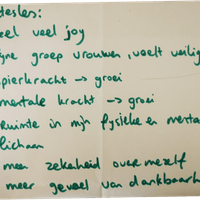 tesles:
eel veel joy
ne groep vrouwen, voelt veilig
pierkracht -> groei
mentale kracht -> groei
Ruimte in mijn fysieke en menta
lichaam
meer zekerheid over mezelf
meer gevoel van dankbaarh